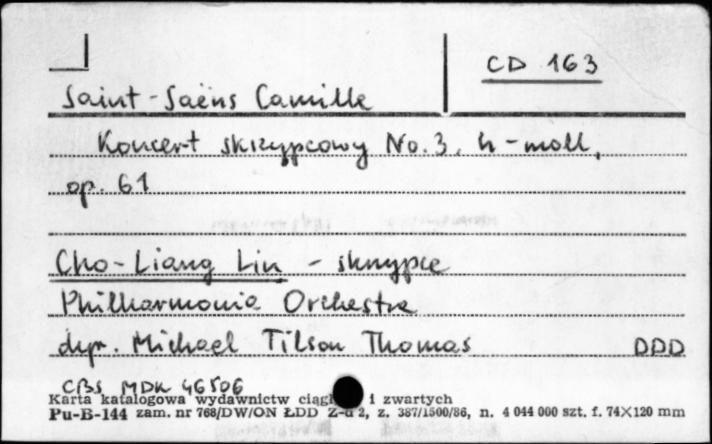 CD 163
Saint-Saëns Camille
Koncert skrzypcowy No.3. h-moll,
op. 61
Cho-Liang Lin - skrzypce
Philharmonia Orchestra
dyr. Michael Tilson Thomas DDD
CBS MDK 46506
Karta katalogowa wydawnictw i zwartych
Pu-B-144 zam. nr 768/DW/ON ŁDD 2, z. 387/1500/86, n. 4 044 000 szt. f. 74×120 mm